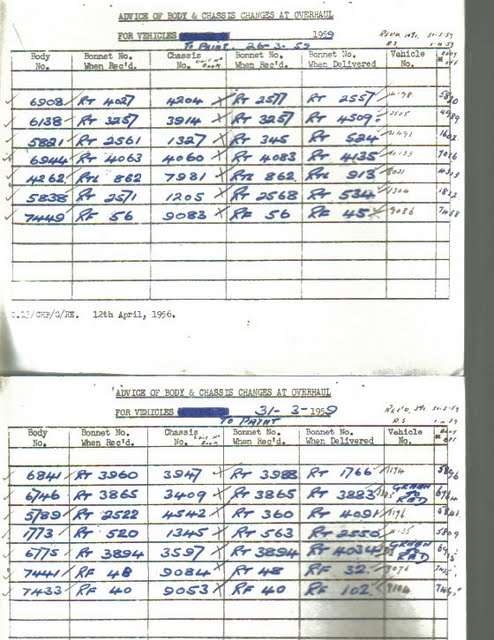 ADVICE OF BODY & CHASSIS CHANGES AT OVERHAUL
FOR VEHICLES 1959
TO PAINT 26-3.59
Body No. Bonnet No. When Rec'd. Chassis No. Bonnet No. When Rec'd. Bonnet No. When Delivered Vehicle No.
6908 RT 4027 4204 RT 2577 RT 2557 4198
6138 RT 3257 3914 RT 3257 RT 4509
5821 RT 2561 1327 RT 345 RT 524
6944 RT 4063 4060 RT 4083 RT 4135
4262 RTL 862 7981 RTL 862 RTL 913
5838 RT 2571 1205 RT 2568 RT 534 1304
7449 RF 56 9083 RF 56 RF 45 9086
12th April, 1956.
ADVICE OF BODY & CHASSIS CHANGES AT OVERHAUL
FOR VEHICLES 31-3-1959
TO PAINT
Body No. Bonnet No. When Rec'd. Chassis No. Bonnet No. When Rec'd. Bonnet No. When Delivered Vehicle No.
6841 RT 3960 3947 RT 3988 RT 1766
6746 RT 3865 3409 RT 3865 RT 3883 GREEN TO RED
5789 RT 2522 4542 RT 360 RT 4091
1773 RT 520 1345 RT 563 RT 2550
6775 RT 3894 3597 RT 3894 RT 4034 GREEN TO RED
7441 RF 48 9084 RT 48 RF 32
7433 RF 40 9053 RF 40 RF 102 9104